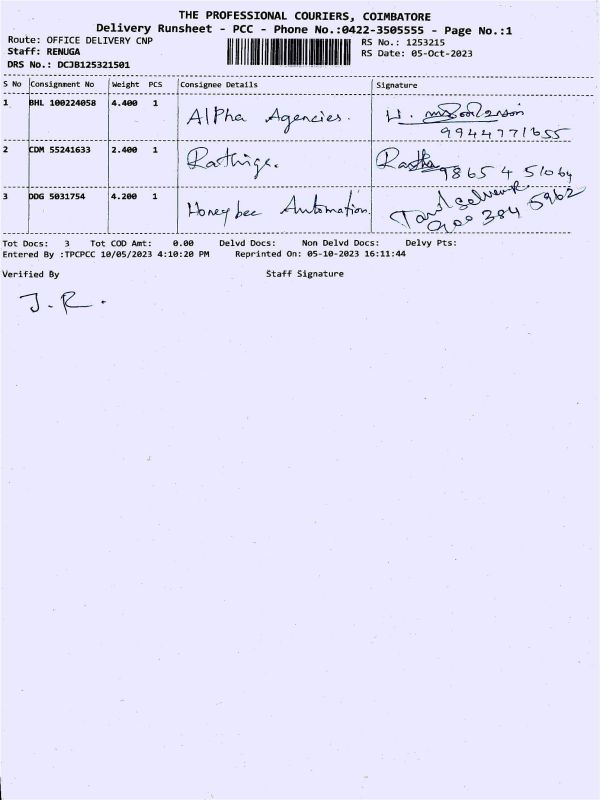 THE PROFESSIONAL COURIERS, COIMBATORE
Delivery Runsheet - PCC - Phone No.:0422-3505555 - Page No.:1
Route: OFFICE DELIVERY CNP RS No.: 1253215
Staff: RENUGA RS Date: 05-Oct-2023
DRS No.: DCJB125321501
S No Consignment No Weight PCS Consignee Details Signature
1 BHL 100224058 4.400 1 Alpha Agencies.
9944771655
2 CDM 55241633 2.400 1
98654 51064
3 DDG 5031754 4.200 1 Honeybee Automation. Tamil Selvan
900 384 5962
Tot Docs: 3 Tot COD Amt: 0.00 Delvd Docs: Non Delvd Docs: Delvy Pts:
Entered By :TPCPCC 10/05/2023 4:10:20 PM Reprinted On: 05-10-2023 16:11:44
Verified By Staff Signature
J.R.